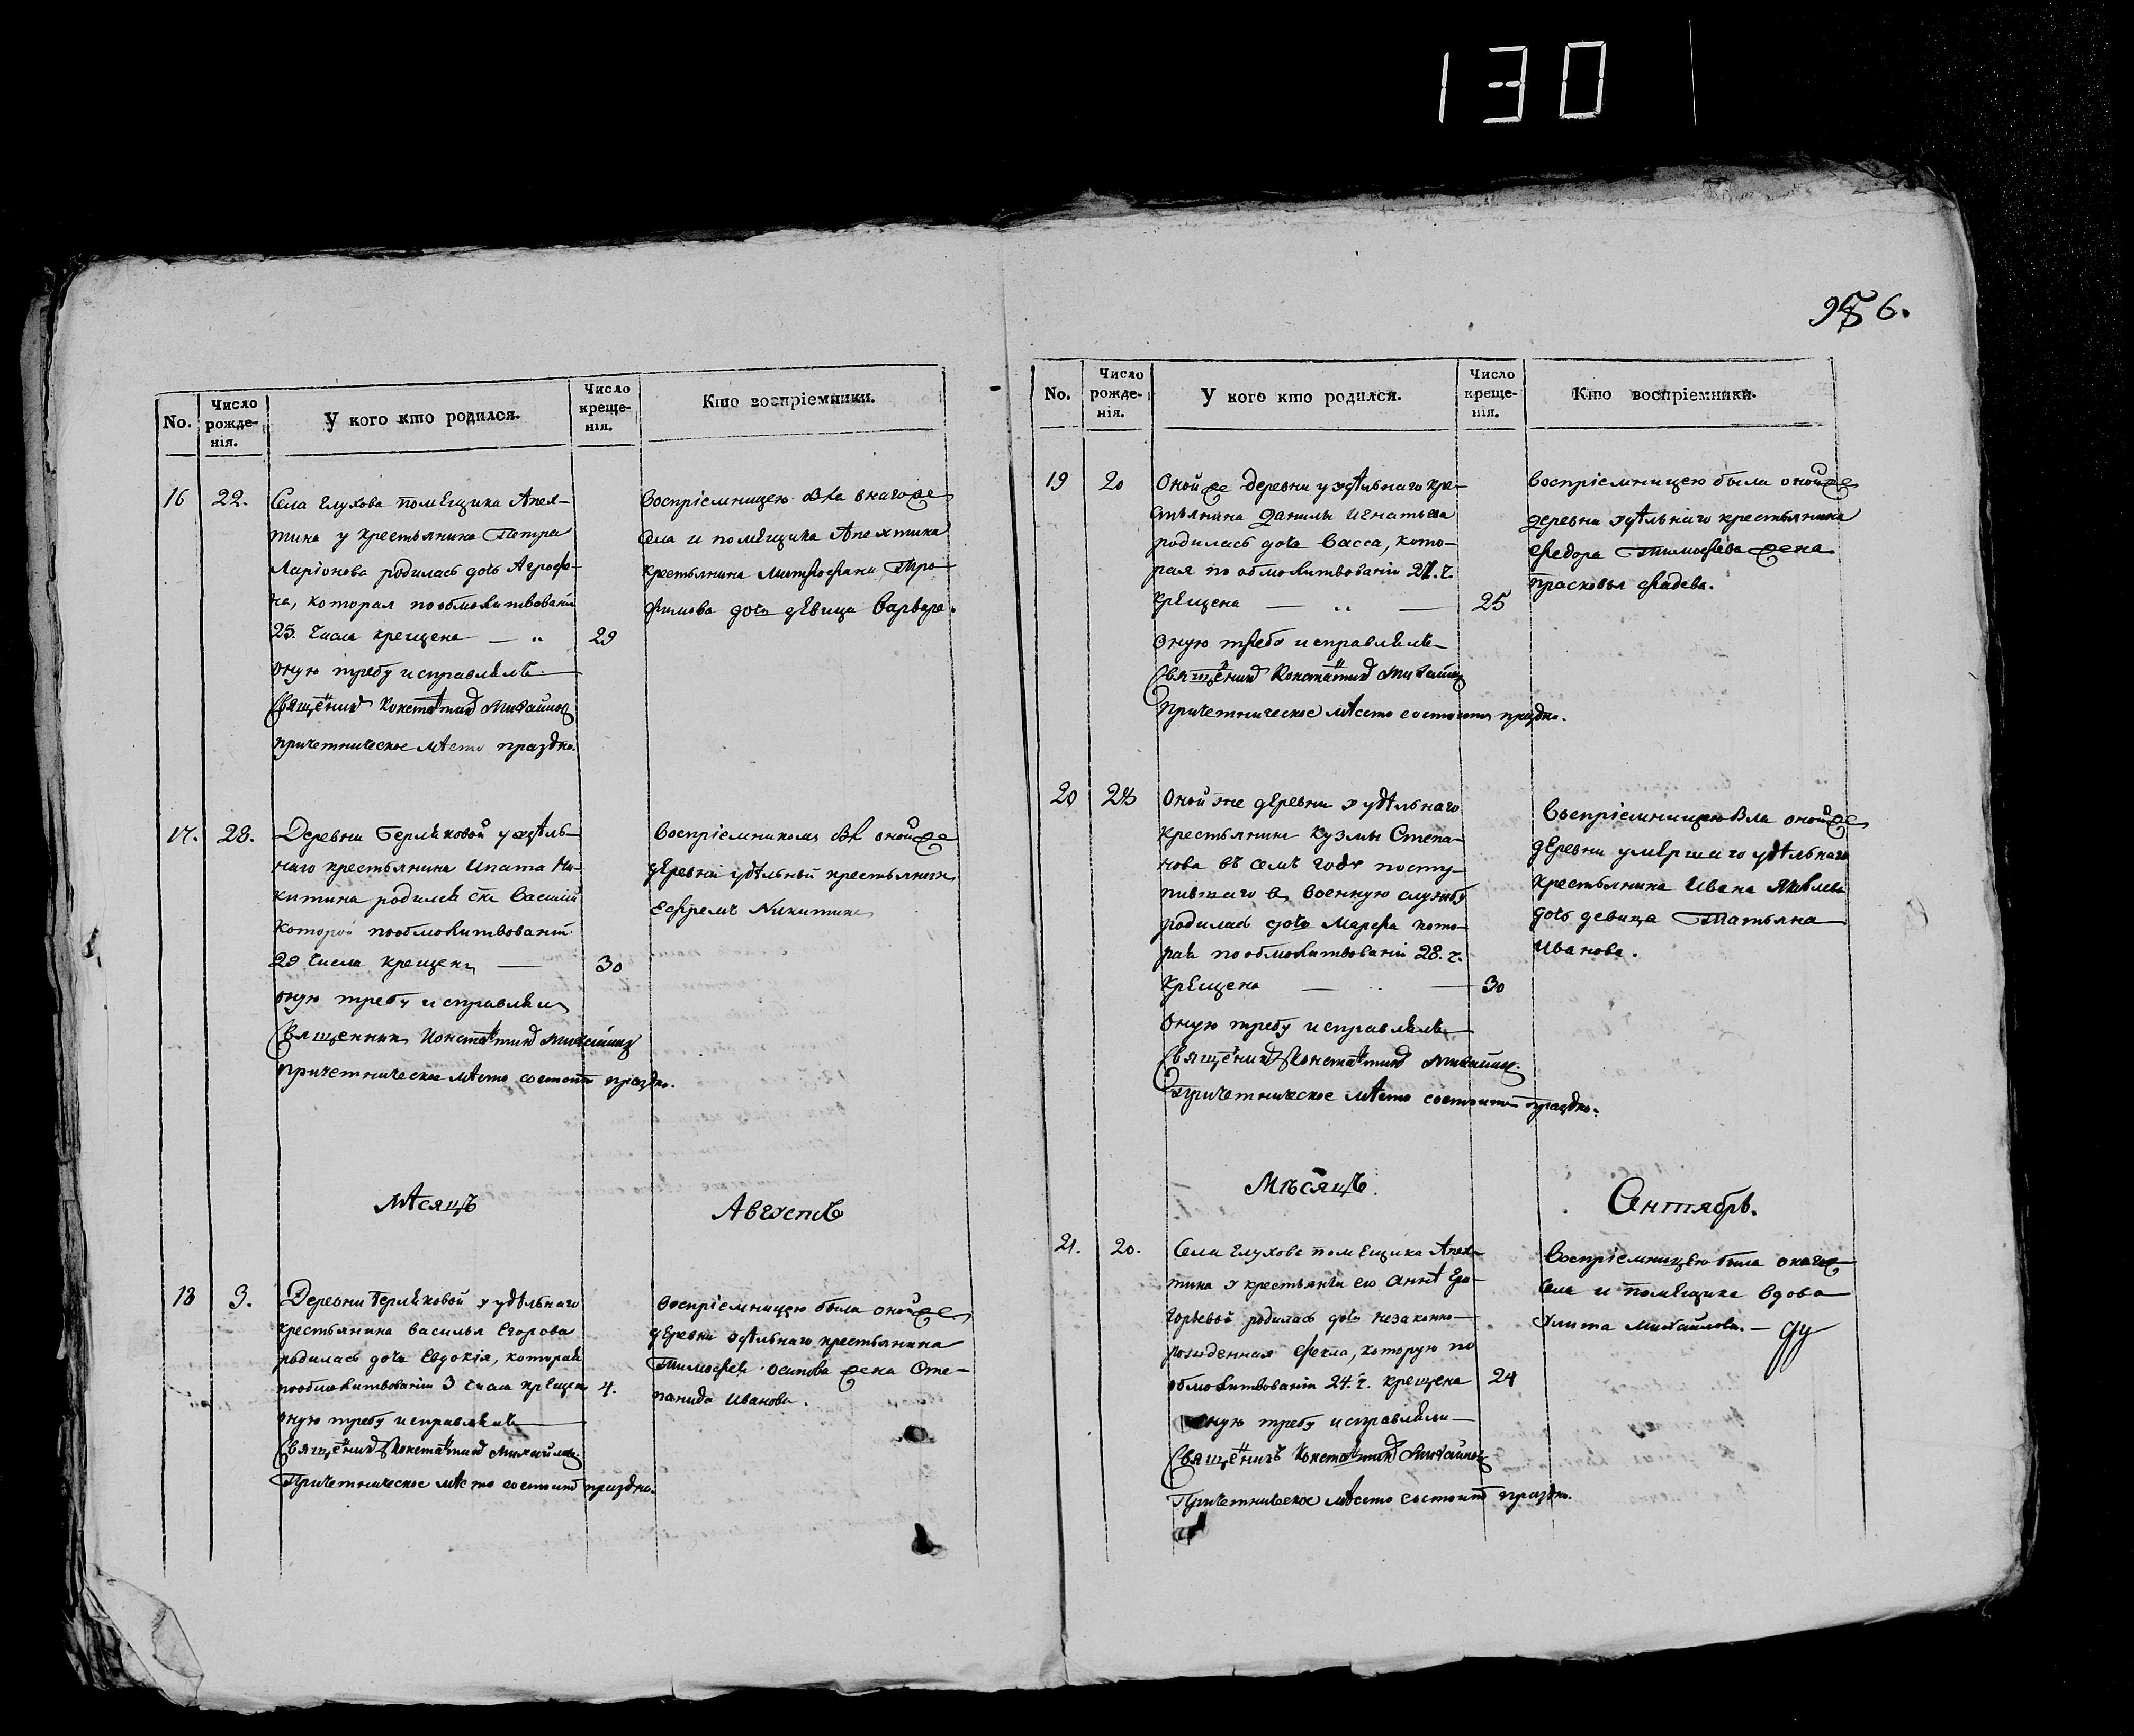 130
956.
No.
Число рожде-
нія.
У кого кто родился.
Число креще-
нія.
Кто воспріемники.
16
22.
Села Глухова помѣщика Апех-
тина у крестьянина Петра
Ларіонова родилась дочь Агрофе-
на, которая по обмолитвованіи
25. числа крещена — „
29
оную требу исправлялъ
Священникъ Константинъ Михайловъ
причетническое мѣсто праздно.
Воспріемницею онаго же
села и помѣщика Апехтина
крестьянина Митрофана Тро-
фимова дочь дѣвица Варвара.
17.
28.
Деревни Берляковой у удѣль-
наго крестьянина Ипата Ни-
китина родился снъ Василій
которой по обмолитвованіи
29 числа крещенъ —
30
оную требу исправлялъ
Священникъ Константинъ Михайловъ
Причетническое мѣсто состоитъ праздно.
Воспріемникомъ оной же
деревни удѣльный крестьянинъ
Ефремъ Никитинъ
Мѣсяцъ
Августъ
18
3.
Деревни Берляковой у удѣльнаго
крестьянина Василья Егорова
родилась дочь Евдокія, которая
по обмолитвованіи 3 числа крещена
4.
оную требу исправлялъ
Священникъ Константинъ Михайловъ
Причетническое мѣсто состоитъ праздно.
Воспріемницею была оной же
деревни удѣльнаго крестьянина
Тимофея Осипова жена Сте-
панида Иванова.
No.
Число рожде-
нія.
У кого кто родился.
Число креще-
нія.
Кто воспріемники.
19
20
Оной же деревни у удѣльнаго кре-
стьянина Данилы Игнатьева
родилась дочь Васса, кото-
рая по обмолитвованіи ч.
крещена — „ —
25
оную требу исправлялъ
Священникъ Константинъ Михайловъ
Причетническое мѣсто состоитъ праздно.
Воспріемницею была оной же
деревни удѣльнаго крестьянина
Федора Тимофеева жена
Прасковья Фадѣева.
20
28
Оной же деревни у удѣльнаго
крестьянина Кузмы Степа-
нова въ семъ годѣ посту-
пившаго въ военную службу
родилась дочь Марфа кото-
рая по обмолитвованіи 28. ч.
крещена — „ —
30
Оную требу исправлялъ
Священникъ Константинъ Михайловъ.
Причетническое мѣсто состоитъ праздно.
Воспріемницею оной же
деревни умершаго удѣльнаго
крестьянина Ивана Яковлева
дочь девица Татьяна
Иванова.
Мѣсяцъ.
Сентябрь.
21.
20.
Села Глухова помѣщика Апех-
тина у крестьянки его Аннѣ Гри-
горьевой родилась дочь незаконно-
рожденная Фекла, которую по
обмолитвованіи 24. ч. крещена
24
Оную требу исправляли
Священникъ Константинъ Михайловъ
Причетническое мѣсто состоитъ праздно.
Воспріемницею была онаго же
села и помѣщика вдова
Улита Михайлова. —